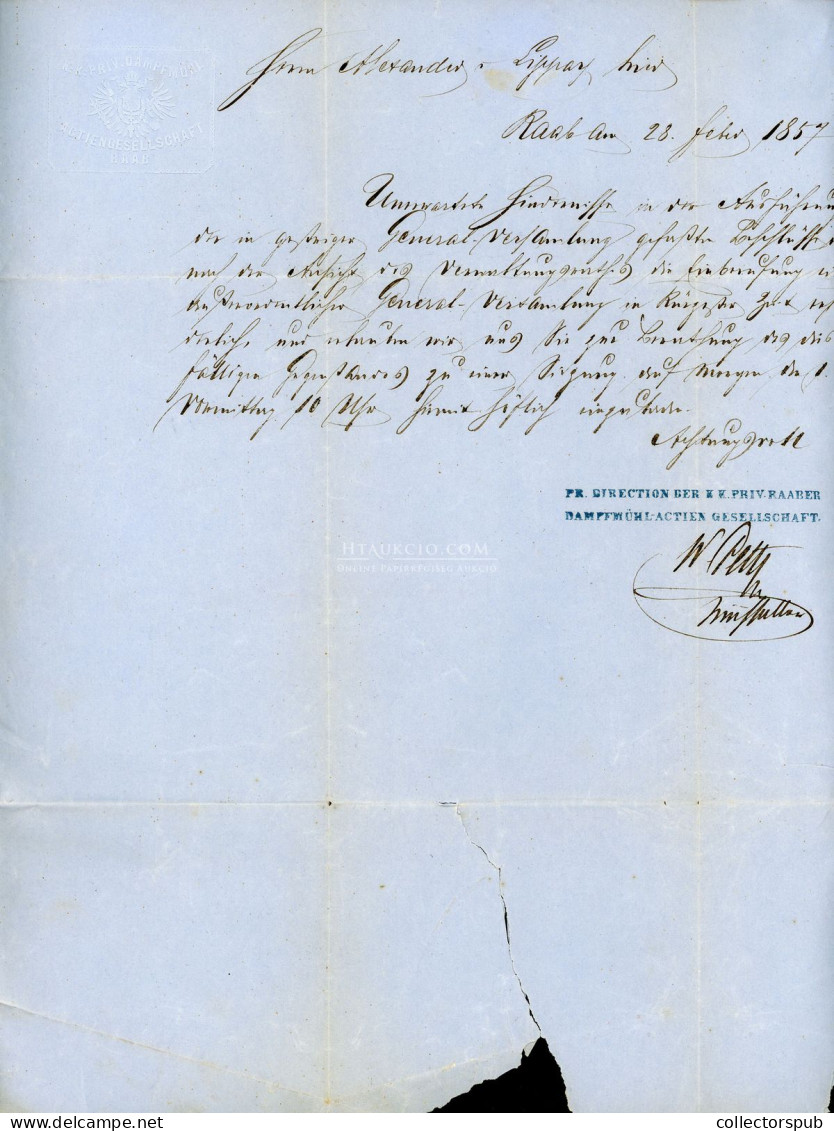 K. K. PRIV. DAMPFMÜHL
ACTIENGESELLSCHAFT
RAAB
Herrn Alexander v Lippay hier
Raab am 28. Feber 1857
Unerwartete Hindernisse in der Ausführun
der in gestriger General-Versamlung gefaßten Beschlüsse
nach der Ansicht des Verwaltungsrathes die Einberufung
außerordentlicher General-Versamlung in kürzester Zeit erf
derlich, und erlauben wir uns Sie zur Berathung des dies
fälligen Gegenstandes zu einer Sitzung auf Morgen den 1.
Vormittag 10 Uhr hiemit höflich einzuladen.
Achtungsvoll
PR. DIRECTION DER K K. PRIV. RAABER
DAMPFMÜHL-ACTIEN GESELLSCHAFT.
HTAUKCIO.COM
ONLINE PAPÍRRÉGISÉG AUKCIÓ
W Petz
collectorspub